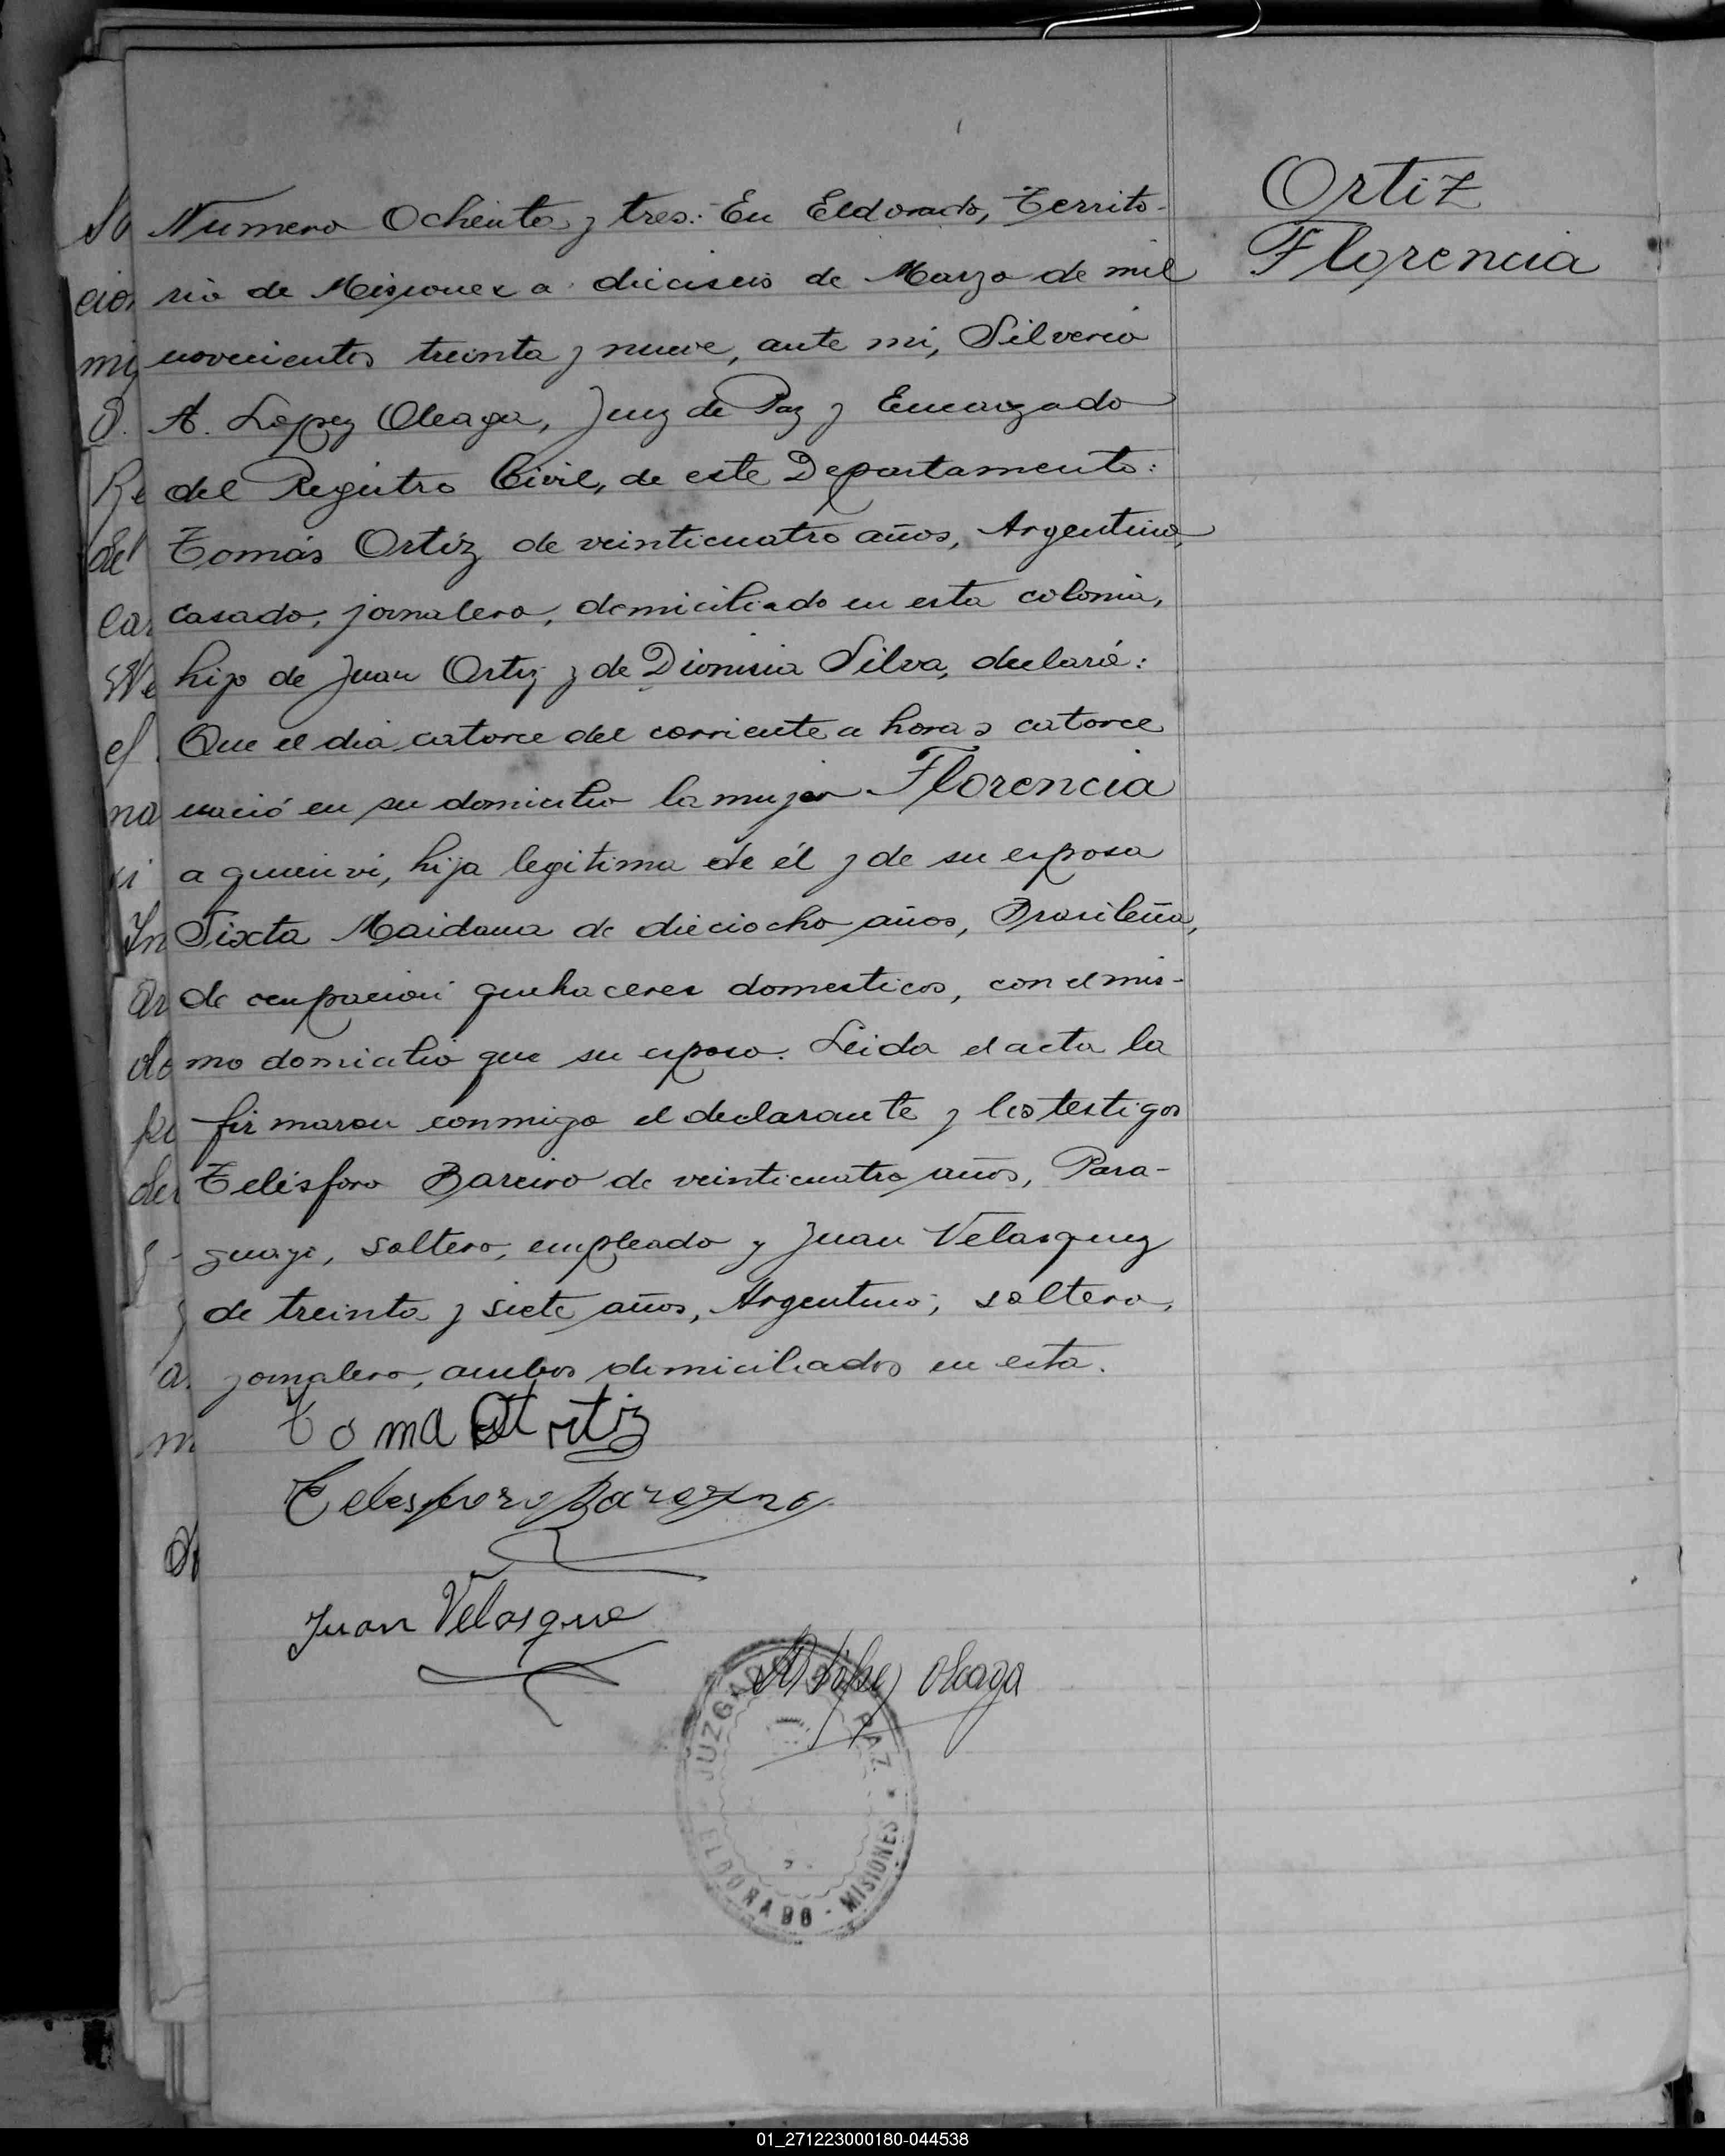 Ortiz
Florencia
Numero Ochenta y tres: En Eldorado, Territo-
rio de Misiones a dieciseis de Marzo de mil
novecientos treinta y nueve, ante mi, Silverio
A. Lopez Oleaga, Juez de Paz y Encargado
del Registro Civil, de este Departamento:
Tomás Ortiz de veinticuatro años, Argentino,
casado, jornalero, domiciliado en esta colonia,
hijo de Juan Ortiz y de Dionisia Silva, declaró:
Que el dia catorce del corriente a horas catorce
nació en su domicilio la mujer Florencia
a quien vi, hija legitima de él y de su esposa
Sixta Maidana de dieciocho años, Brasileña,
de ocupación quehaceres domesticos, con el mis-
mo domicilio que su esposo. Leida el acta la
firmaron conmigo el declarante y los testigos
Telésforo Bareiro de veinticuatro años, Para-
guayo, soltero, empleado y Juan Velasquez
de treinta y siete años, Argentino, soltero,
jornalero, ambos domiciliados en esta.
Toma Ortiz
Telesforo Bareiro
Juan Velasque
Lopez Oleaga
JUZGADO DE PAZ
ELDORADO - MISIONES
01_271223000180-044538